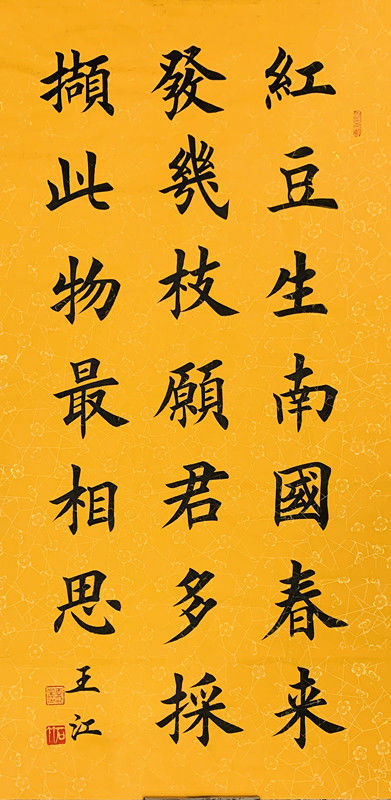 紅豆生南國春来
發幾枝願君多採
擷此物最相思
王江